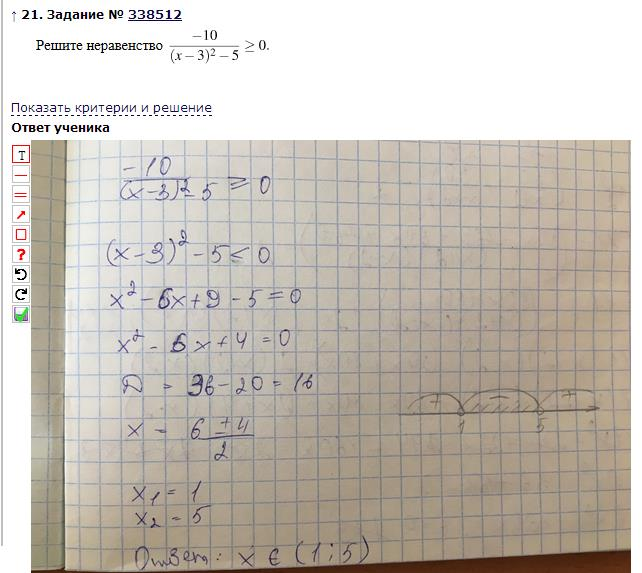 ↑ 21. Задание № 338512
Решите неравенство −10 / ((x − 3)² − 5) ≥ 0.
Показать критерии и решение
Ответ ученика
T
?
−10 / ((x−3)² − 5) ≥ 0
(x−3)² − 5 < 0
x² − 6x + 9 − 5 = 0
x² − 6x + 4 = 0
D = 36 − 20 = 16
x = (6 ± 4) / 2
+ − +
1 5
x₁ = 1
x₂ = 5
Ответ: x ∈ (1; 5)